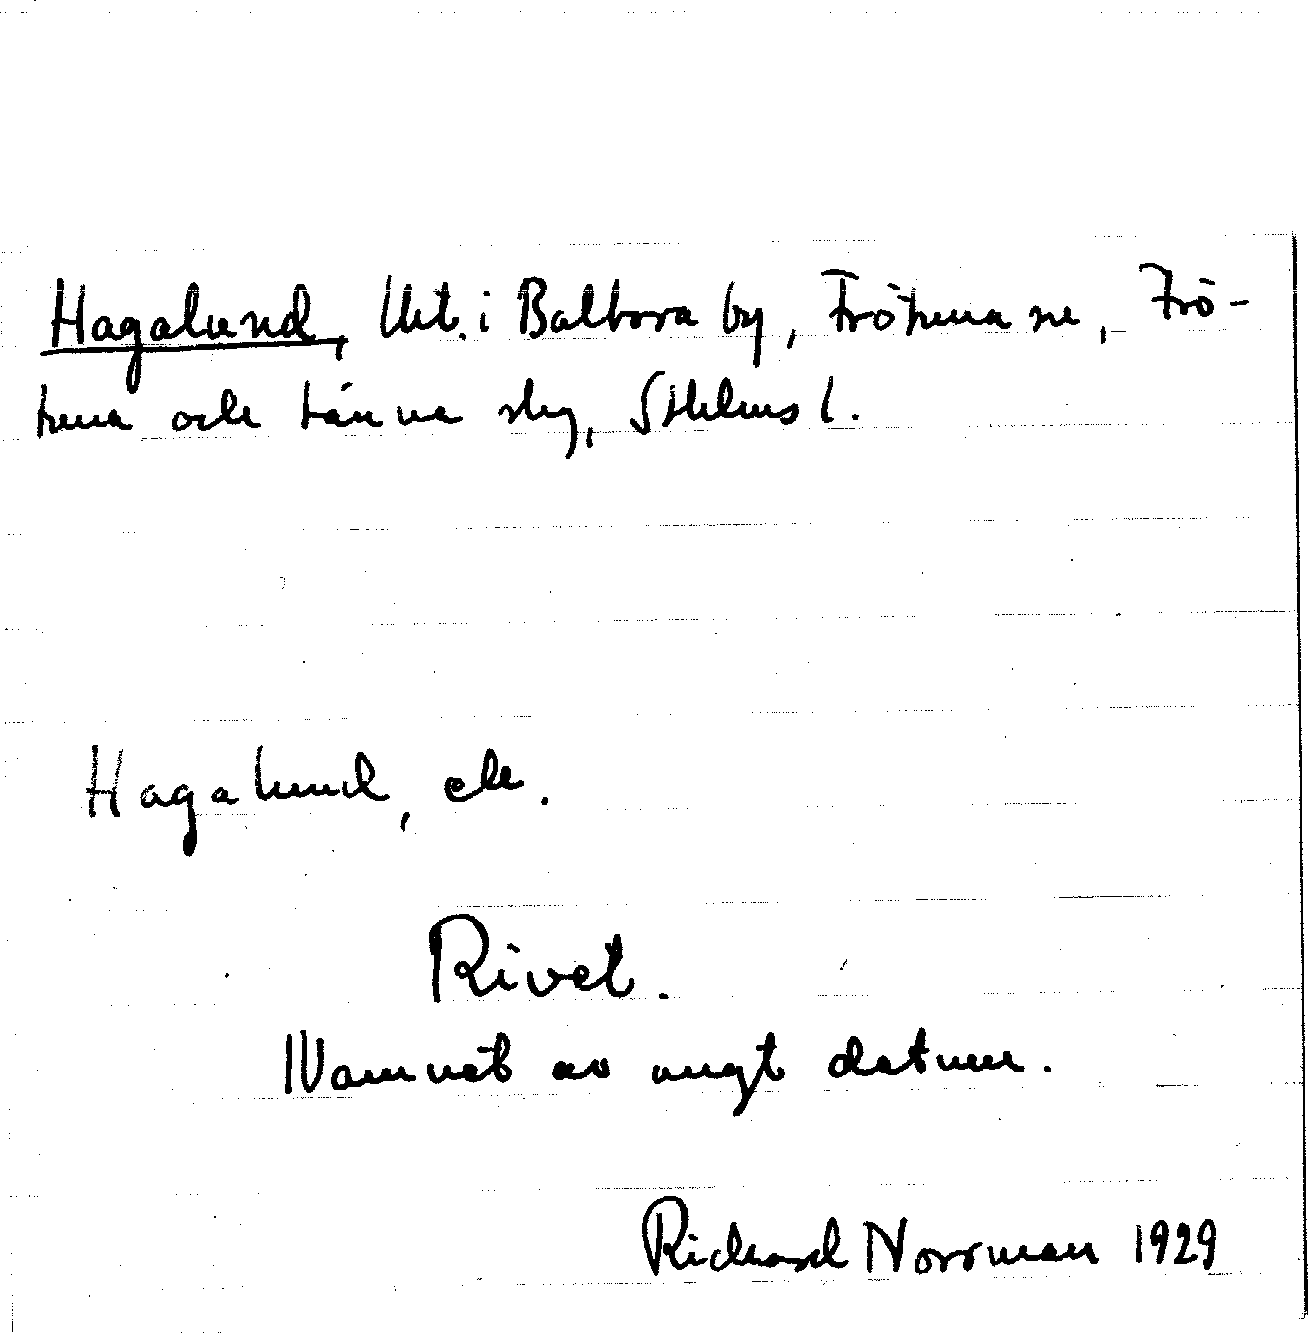 Hagalund, Utt. i Balbora by, Frötuna sn, Frö-
tuna och Länna slg, Sthlms l.
Hagalund, ele.
Rivet.
Namnet av ungt datum.
Richard Norrman 1929